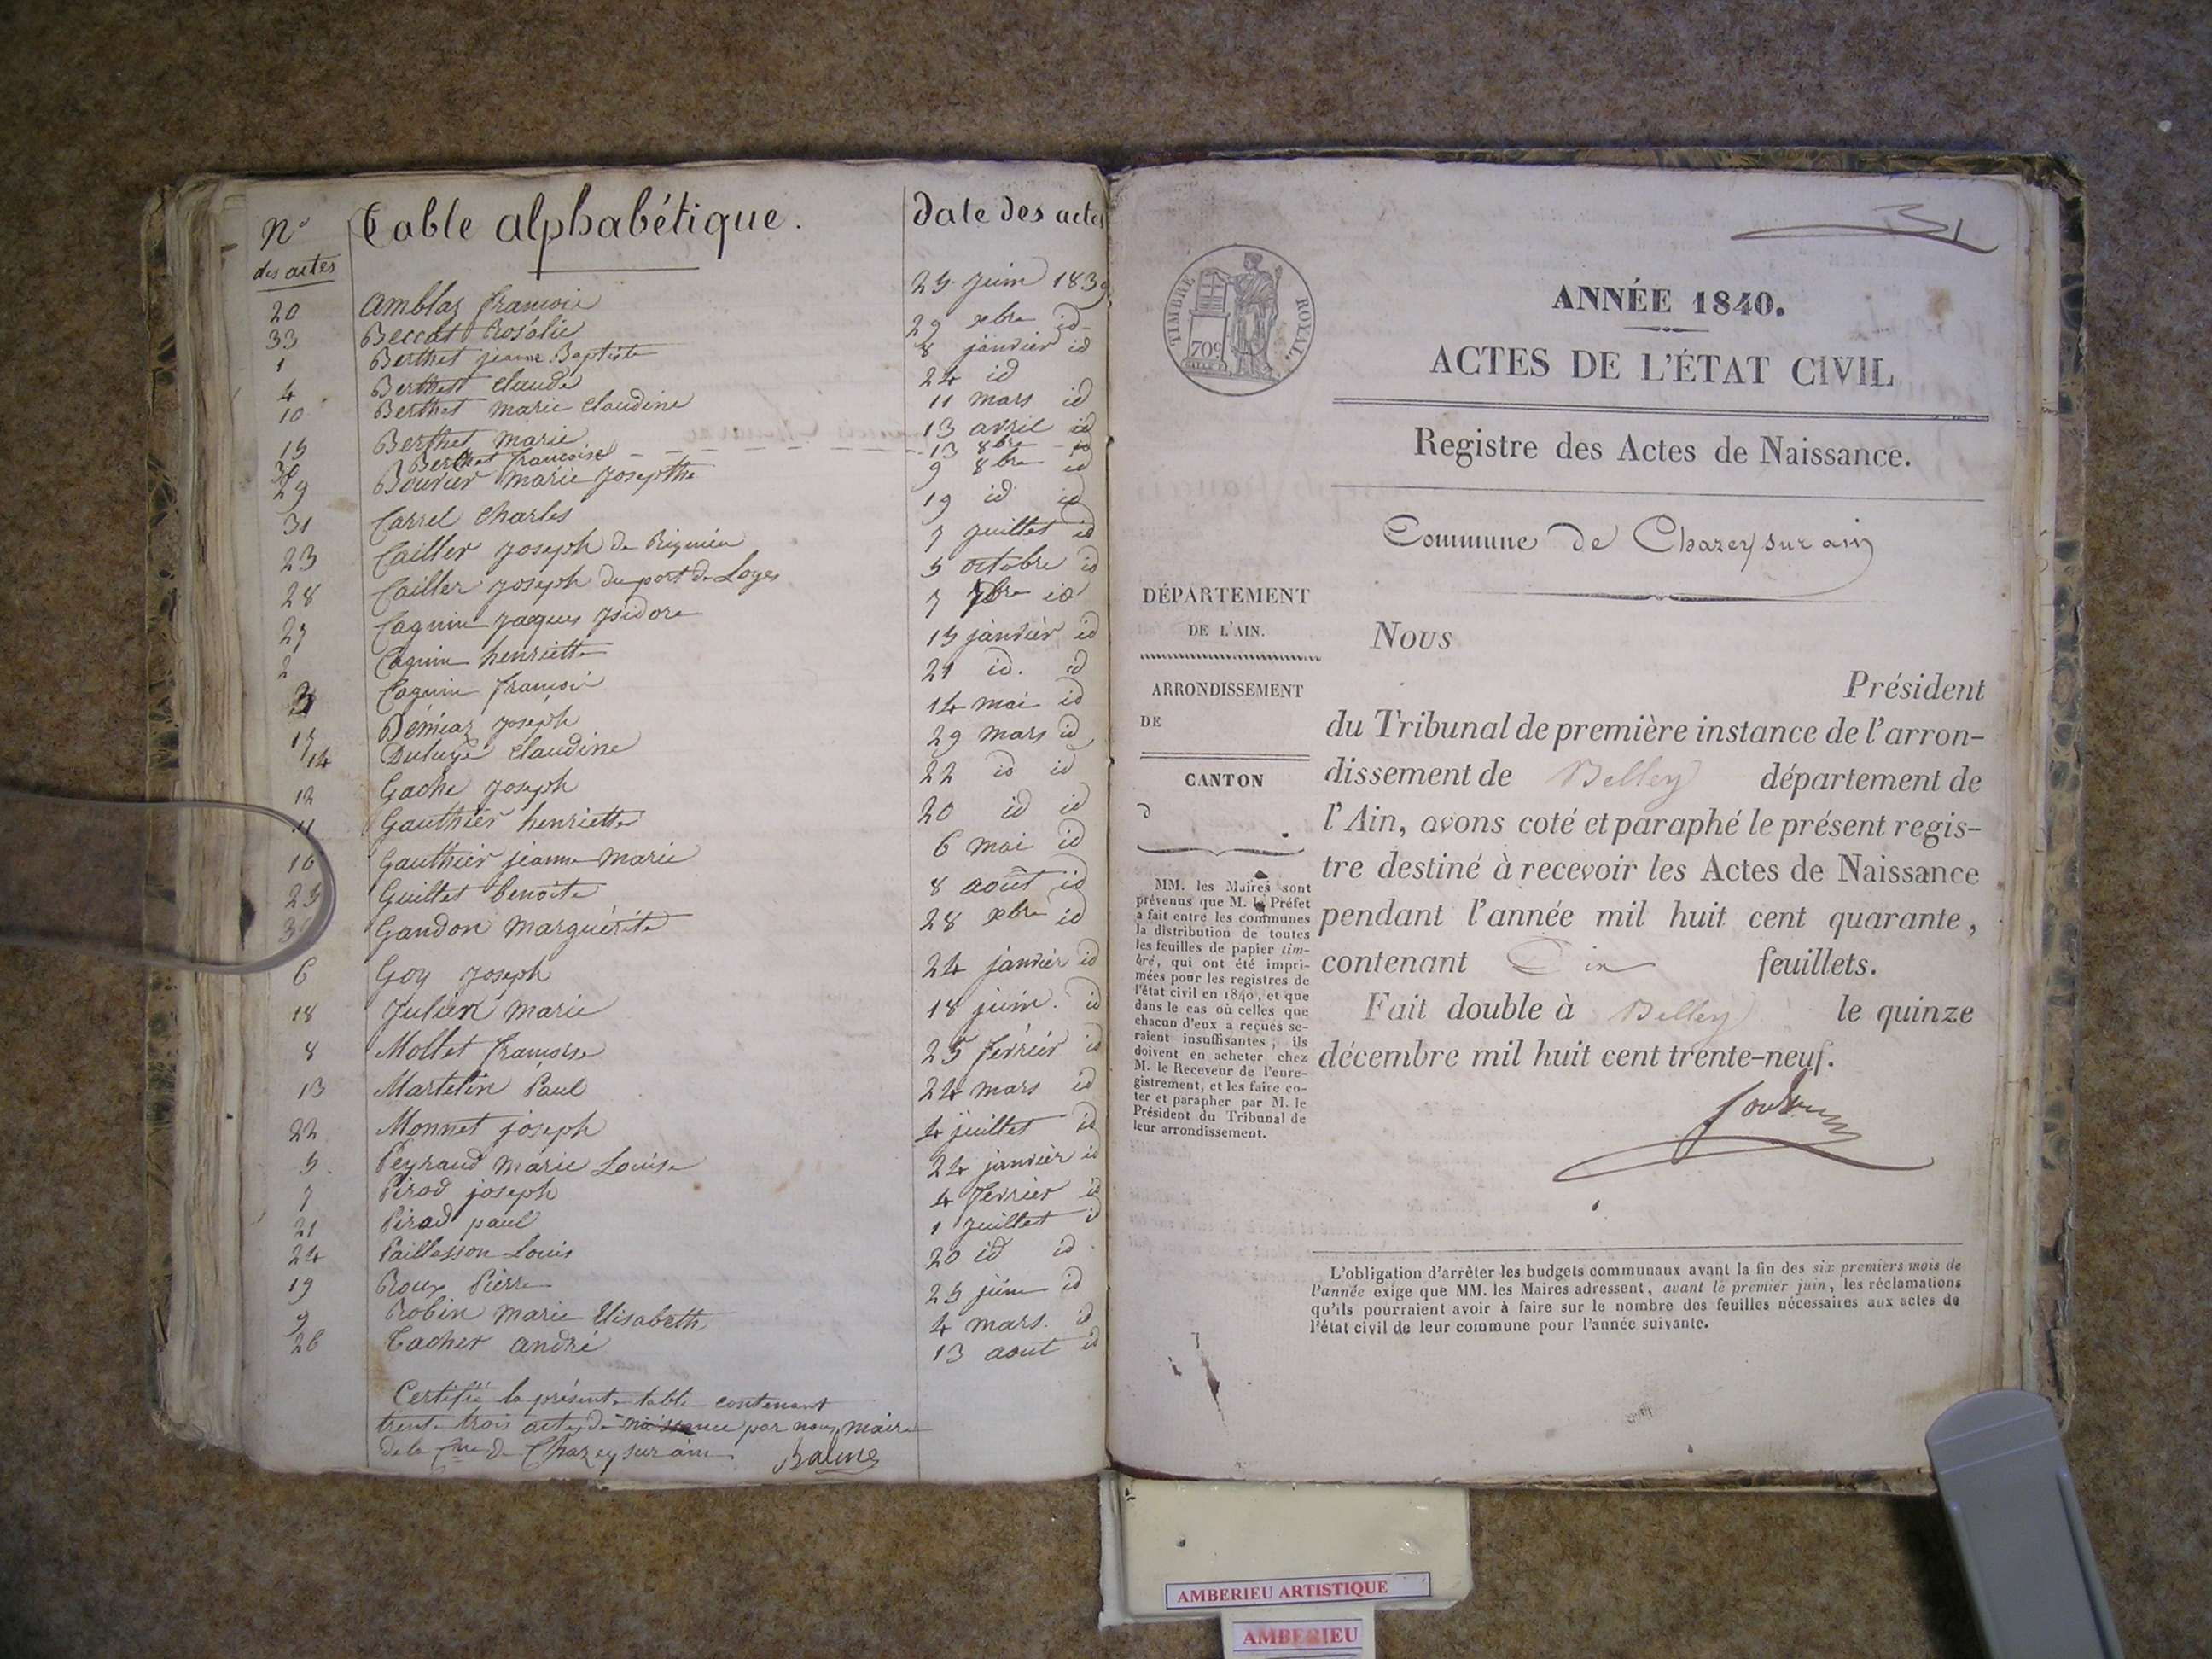 No des actes Table alphabétique. Date des actes
20 Amblaz francois 25 juin 1839
33 Beccat Rosalie 29 xbre id
1 Berthet jeanne Baptiste 8 janvier id
4 Berthet Claude 24 id
10 Berthet marie Claudine 11 mars id
15 Berthet marie 13 avril id
30 Berthet francoise 13 8bre id
29 Bouvier marie Josepthe 9 8bre id
31 Carrel Charles 19 id id
23 Cailler Joseph de Rignieu 7 juillet id
28 Cailler Joseph du port de Loyes 5 octobre id
27 Cognin Jacques Isidore 7 7bre id
2 Cognin henriette 15 janvier id
3 Cognin francois 21 id. id
17 Démiaz Joseph 14 mai id
14 Claudine 29 mars id
12 Gache Joseph 22 id id
11 Gauthier henriette 20 id id
16 Gauthier jeanne Marie 6 mai id
25 Guillet benoite 8 août id
Gandon Marguerite 28 xbre id
6 Goy Joseph 24 janvier id
18 Julien Marie 18 juin. id
8 Mollet francoise 25 février id
13 Martelin Paul 24 mars id
22 Monnet joseph 4 juillet id
5. Peyraud Marie Louise 24 janvier id
7 Pirod joseph 4 fevrier id
21 Pirod paul 1 juillet id
24 Paillasson Louis 20 id id
19 Roux Pierre 25 juin id
9 Robin Marie Elisabeth 4 mars. id
26 Tacher andré 13 aout id
Certifié la présente table contenant
trente trois actes de naissance par nous, maire
de la Cne de Chazey sur ain Balme
31
TIMBRE ROYAL.
70c
ANNÉE 1840.
ACTES DE L'ÉTAT CIVIL
Registre des Actes de Naissance.
Commune de Chazey sur ain
DÉPARTEMENT
DE L'AIN.
ARRONDISSEMENT
DE
CANTON
d
MM. les Maires sont
prévenus que M. le Préfet
a fait entre les communes
la distribution de toutes
les feuilles de papier tim-
bré, qui ont été impri-
mées pour les registres de
l'état civil en 1840, et que
dans le cas où celles que
chacun d'eux a reçues se-
raient insuffisantes, ils
doivent en acheter chez
M. le Receveur de l'enre-
gistrement, et les faire co-
ter et parapher par M. le
Président du Tribunal de
leur arrondissement.
Nous
Président
du Tribunal de première instance de l'arron-
dissement de Belley département de
l'Ain, avons coté et paraphé le présent regis-
tre destiné à recevoir les Actes de Naissance
pendant l'année mil huit cent quarante,
contenant Dix feuillets.
Fait double à Belley le quinze
décembre mil huit cent trente-neuf.
L'obligation d'arrêter les budgets communaux avant la fin des six premiers mois de
l'année exige que MM. les Maires adressent, avant le premier juin, les réclamations
qu'ils pourraient avoir à faire sur le nombre des feuilles nécessaires aux actes de
l'état civil de leur commune pour l'année suivante.
AMBERIEU ARTISTIQUE
AMBERIEU